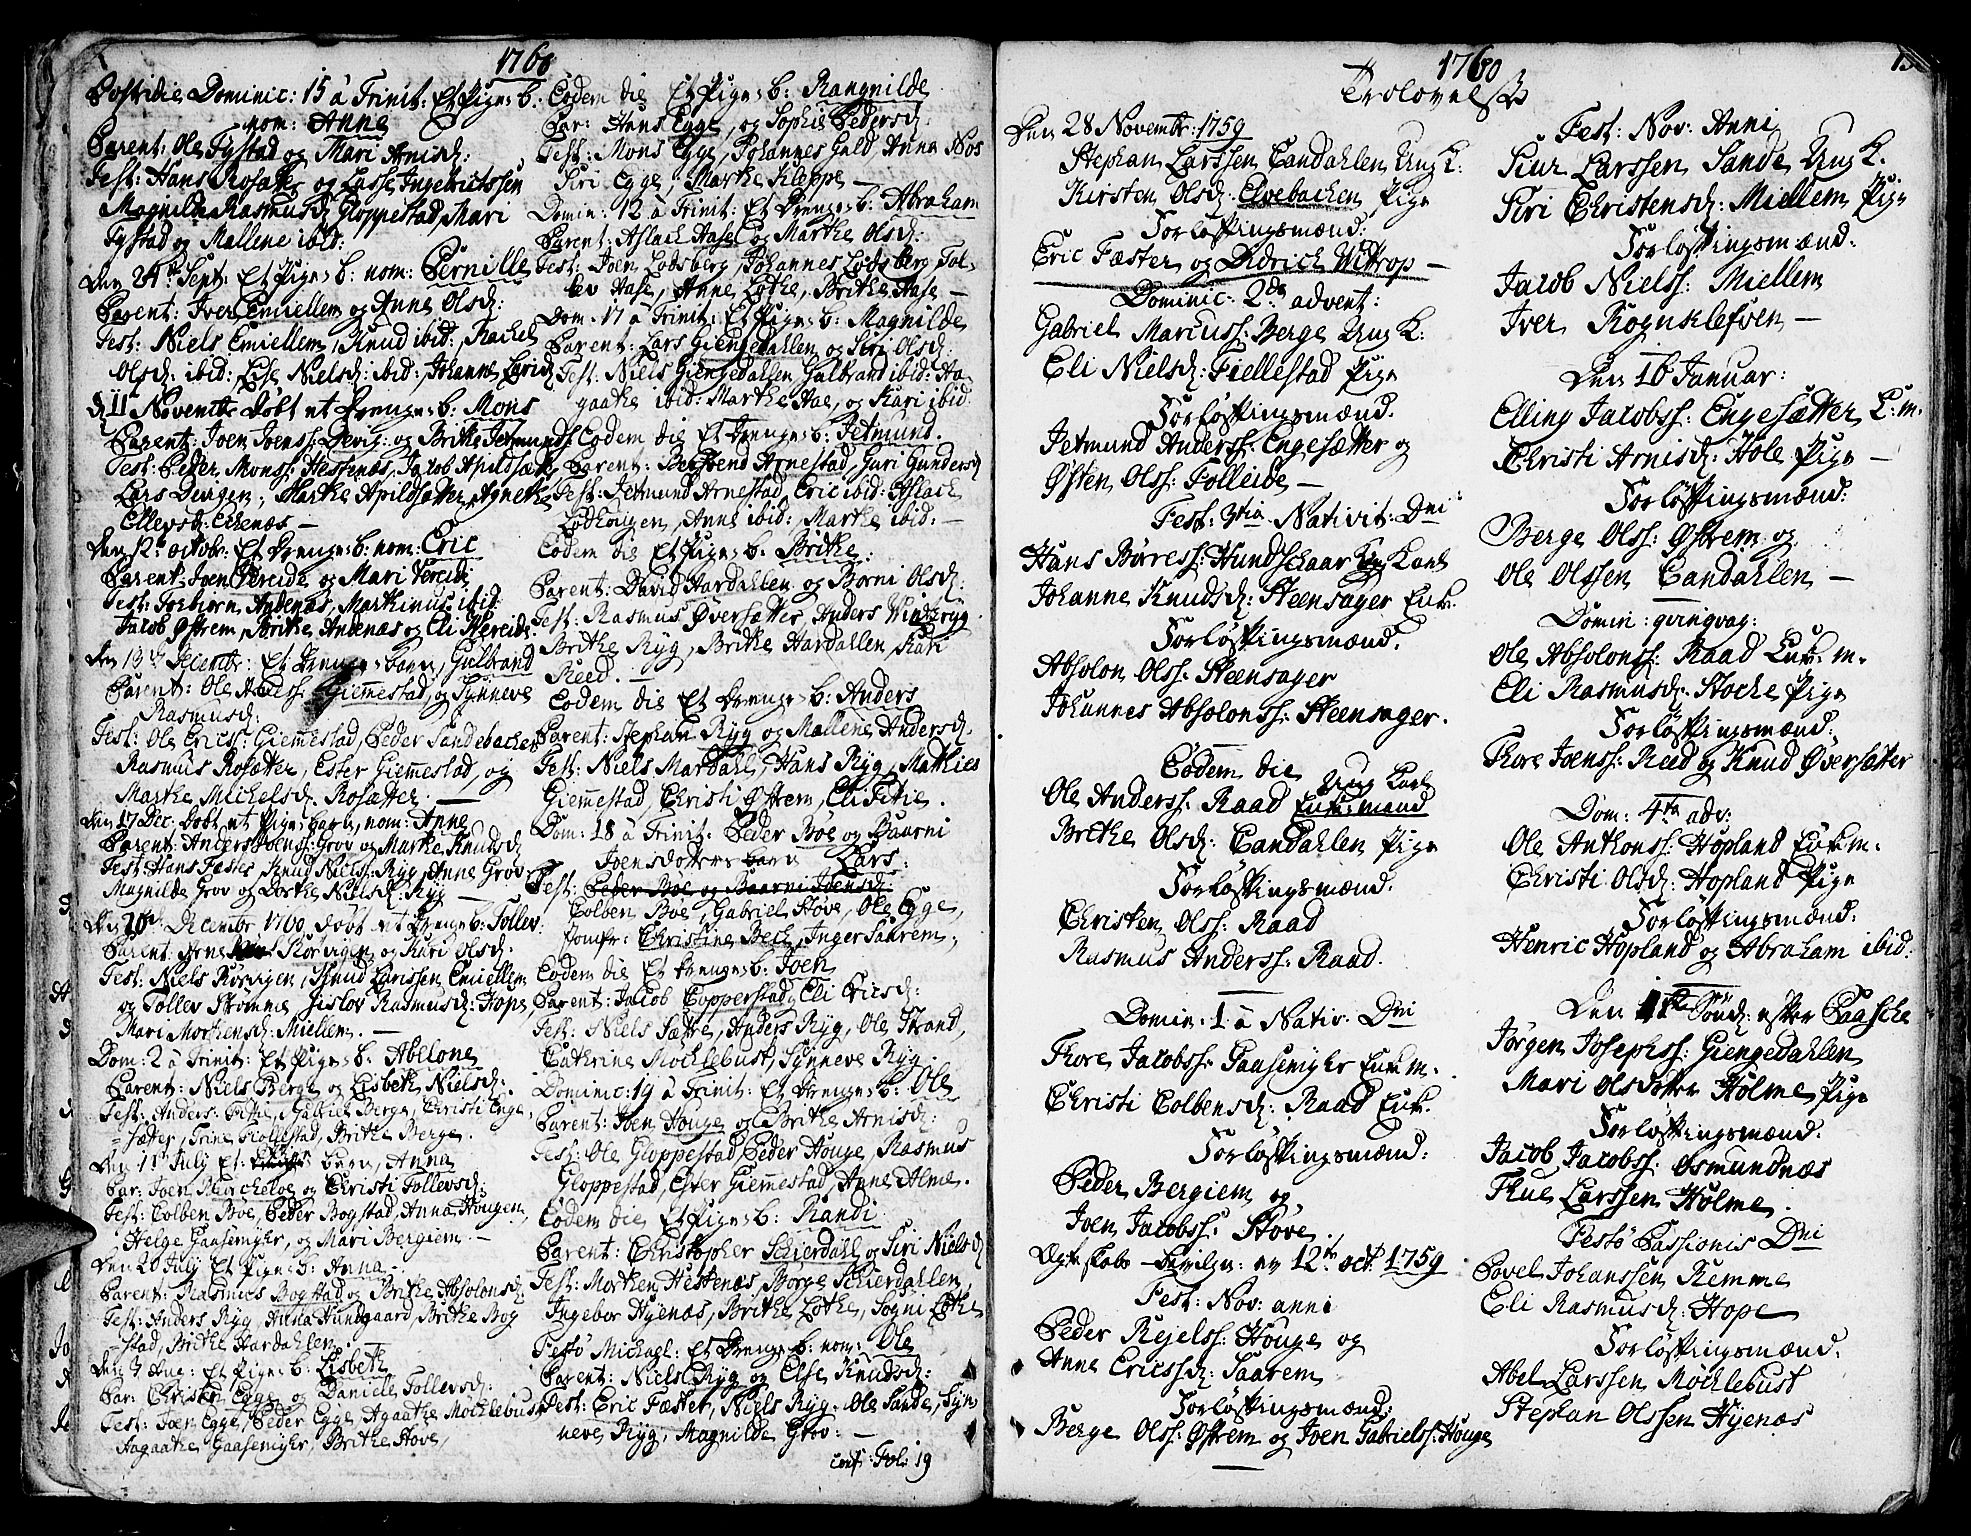 1760
Postridie Dominic: 15 à Trinit: Et Pige b:
nom: Anne
Parent: Ole Tystad og Mari Arnisd:
Test: Hans Rosætter og Lasse Ingebrictssen
Magnilde Rasmusd: Gloppestad, Mari
Tystad og Mallene ibid:
Den 24de Sept: Et Pige b: nom: Pernille
Parent: Iver Emiellem og Anne Olsd:
Test: Niels Emiellem, Knud ibid: Rachel
Olsd: ibid: Else Nielsd: ibid: Johanne Larsd
d. 11 Novembr døbt et Drenge b: Mons
Parent: Joen Joenss: Devig: og Brithe Jetmunds
Test: Peder Monss: Hestenæs, Jacob Apildsætt
Lars Devigen, Marthe Apildsætter, Agnethe
Ellevsd: Eikenæs —
Den 12te octobr: Et Drenge b: nom: Eric
Parent: Joen Vereide og Mari Vereide
Test: Torbiørn Andenæs, Marthinus ibid:
Jacob Østrem, Brithe Andenæs og Eli Vereide.
Den 13de Decembr: Et Drenge barn, Gulbrand
Parent: Ole Anderss: Giemmestad, og Synneve
Rasmusd:
Test: Ole Ericss: Giemmestad, Peder Sandebachen
Rasmus Rosætter, Ester Giemmestad, og
Marthe Michelsd. Rosætter. —
Den 17 Dec: døbt et Pige barn, nom: Anne
Parent: Anders Joenss: Grov og Marthe Knudsd
Test: Hans Fæster, Knud Nielss: Ryg, Anne Grov
Magnilde Grov og Dorthe Nielsd: Ryg —
Den 20de Decembr 1760 døbt et Drenge b: Tollev
Parent: Arne Rørvigen og Kari Olsd:
Test: Niels Rørvigen, Knud Larssen Emiellem
og Tollev Strømme, Gislov Rasmusd: Hope,
Mari Morthensd: Miellem. —
Dom: 2 à Trinit: Et Pige b: Abelone
Parent: Niels Berge og Lisbeth Nielsd:
Test: Anders Bethe, Gabriel Berge, Christi Enge
sætter, Trine Fiollestad, Brithe Berge.
Den 11te Julij Et barn, Anna
Par: Joen Myrcheloe og Christi Tollevsd:
Test: Colben Bøe, Peder Bogstad, Anna Hougen,
Helge Gaasemyhr, og Mari Bergiem. —
Den 20 Julij Et Pige b: Anna —
Parent: Rasmus Bogstad og Brithe Absolonsd:
Test: Anders Ryg, Anna Hundgaard, Brithe Bog
stad, Brithe Hardahlen
Den 3 Aug: Et Pige b: Lisbeth
Par: Christen Egge og Daniele Tollevsd:
Test: Joen Egge, Peder Egge, Agaathe Mochlebust
Aagaathe Gaasemyhr, Brithe Hove,
Eodem die Et Pige b: Rangnilde
Par: Hans Egge, og Sophie Pedersd:
Test: Mons Egge, Johannes Gald, Anna Nos
Siri Egge, Marthe Kleppe —
Domin: 12 à Trinit: Et Drenge b: Abraham
Parent: Aslach Aase og Marthe Olsd:
Test: Joen Lodsberg, Johannes Lodsberg, Tol-
lev Aase, Anne Løthe, Brithe Aase —
Dom: 17 à Trinit: Et Pige b: Magnilde
Parent: Lars Giengedahlen og Siri Olsd:
Test: Niels Giengedallen, Gulbrand ibid: Aa-
gaathe ibid: Marthe Aae, og Kari ibid:
Eodem die Et Drenge b: Jetmund.
Parent: Bersvend Arnestad, Guri Gundersd
Test: Jetmund Arnestad, Eric ibid: Aslach
Lødhougen, Anne ibid: Marthe ibid: —
Eodem die Et Pige b: Brithe:
Parent: David Hardahlen og Børni Olsd:
Test: Rasmus Øversætter, Anders Windtryg
Brithe Ryg, Brithe Hardallen, Kari
Reed. —
Eodem die Et Drenge b: Anders
Parent: Stephan Ryg og Mallene Andersd.
Test: Niels Mardahl, Hans Ryg, Mathies
Giemmestad, Christi Østrem, Eli Fitie.
Dom: 18 à Trinit: Peder Bøe og Baarni
Joensdotters barn Lars:
Test: Peder Bøe og Baarni Joensd:
Colben Bøe, Gabriel Hove, Ole Egge,
Jomfr: Christine Bech, Inger Saarem,
Eodem die Et Drenge b: Joen
Parent: Jacob Copperstad, Eli Ericsd:
Test: Niels Sætte, Anders Ryg, Ole Strand,
Cathrine Mochlebust, Synneve Ryg.
Dominic: 19 à Trinit: Et Drenge b: Ole
Parent: Joen Houge og Brithe Arnisd:
Test: Ole Gloppestad, Peder Houge, Rasmus
Gloppestad, Ester Giemmestad, Anne Alme.
Eodem die Et Pige b: Randi
Parent: Christopher Schierdahl og Siri Nielsd
Test: Morthen Hestenæs, Børge Schierdahlen,
Ingebor Hyenæs, Brithe Løthe, Sogni Løthe
Festo Michael: Et Drenge b: nom: Ole
Parent: Niels Ryg og Else Knudsd:
Test: Eric Fæster, Niels Ryg, Ole Sande, Syn
neve Ryg, Magnilde Grov: —
conf: Fol: 19
1760
Trolovelser
Den 28 Novembr: 1759
Stephan Larssen Candahlen Ung K:
Kirsten Olsd: Elvebachen Pige
Forløftningsmænd:
Eric Fæster og Didrich Wittrop —
Dominic: 2da advent:
Gabriel Marcuss: Berge Ung K:
Eli Nielsd: Fiellestad Pige
Forløftningsmænd.
Jetmund Anderss: Engesætter og
Østen Olss: Folleide —
Fest: 3tia Nativit: Dni
Hans Børress: Hundschaar Ung Karl
Johanne Knudsd: Steensager Enk.
Forløftningsmænd.
Absolon Olss: Steensager
Johannes Absolonss: Steensager.
Eodem die
Ung Karl
Ole Anderss: Raad Enke mand
Brithe Olsd: Candahlen Pige
Forløftningsmænd.
Christen Olss: Raad
Rasmus Anderss: Raad.
Domin: 1 à Nativ: Dni
Thore Jacobss: Gaasemyhr Enk m.
Christi Colbensd: Raad Enk.
Forløftningsmænd:
Peder Bergiem og
Joen Jacobss: Hove.
Ægteskabs Bevilgn: av 12te oct: 1759.
Fest: Nov: anni
Peder Rejelss: Houge og
Anne Ericssd: Saarem
Forløftningsmænd:
Berge Olss: Østrem og Joen Gabrielss: Houge
Fest: Nov: Anni
Siur Larssen Sande Ung K.
Siri Christensd: Miellem Pige
Forløftningsmænd:
Jacob Nielss: Miellem
Iver Rognklefven —
Den 16 Januar:
Elling Jacobss: Engesætter E: m.
Christi Arnisd: Hole Pige —
Forløftningsmænd:
Berge Olss: Østrem og
Ole Olssen Candahlen —
Domin: qvinqvag:
Ole Absolonss: Raad Enk: m.
Eli Rasmusd: Stoche Pige
Forløftningsmænd:
Thore Joenss: Reed og Knud Øversætter
Dom: 4ta adv:
Ole Anthonss: Hopland Enk m.
Christi Olsd: Hopland Pige
Forløftningsmænd:
Henric Hopland og Abraham ibid:
Den 1ste Sønd: efter Paasche
Jørgen Josephss: Giengedahlen
Mari Olsdotter Holme Pige
Forløftningsmænd:
Jacob Jacobss: Osmundnæs
Thue Larssen Holme.
Festo Passionis Dni
Povel Johanssen Remme
Eli Rasmusd: Hope
Forløftningsmænd:
Abel Larssen Mochlebust
Stephan Olssen Hyenæs